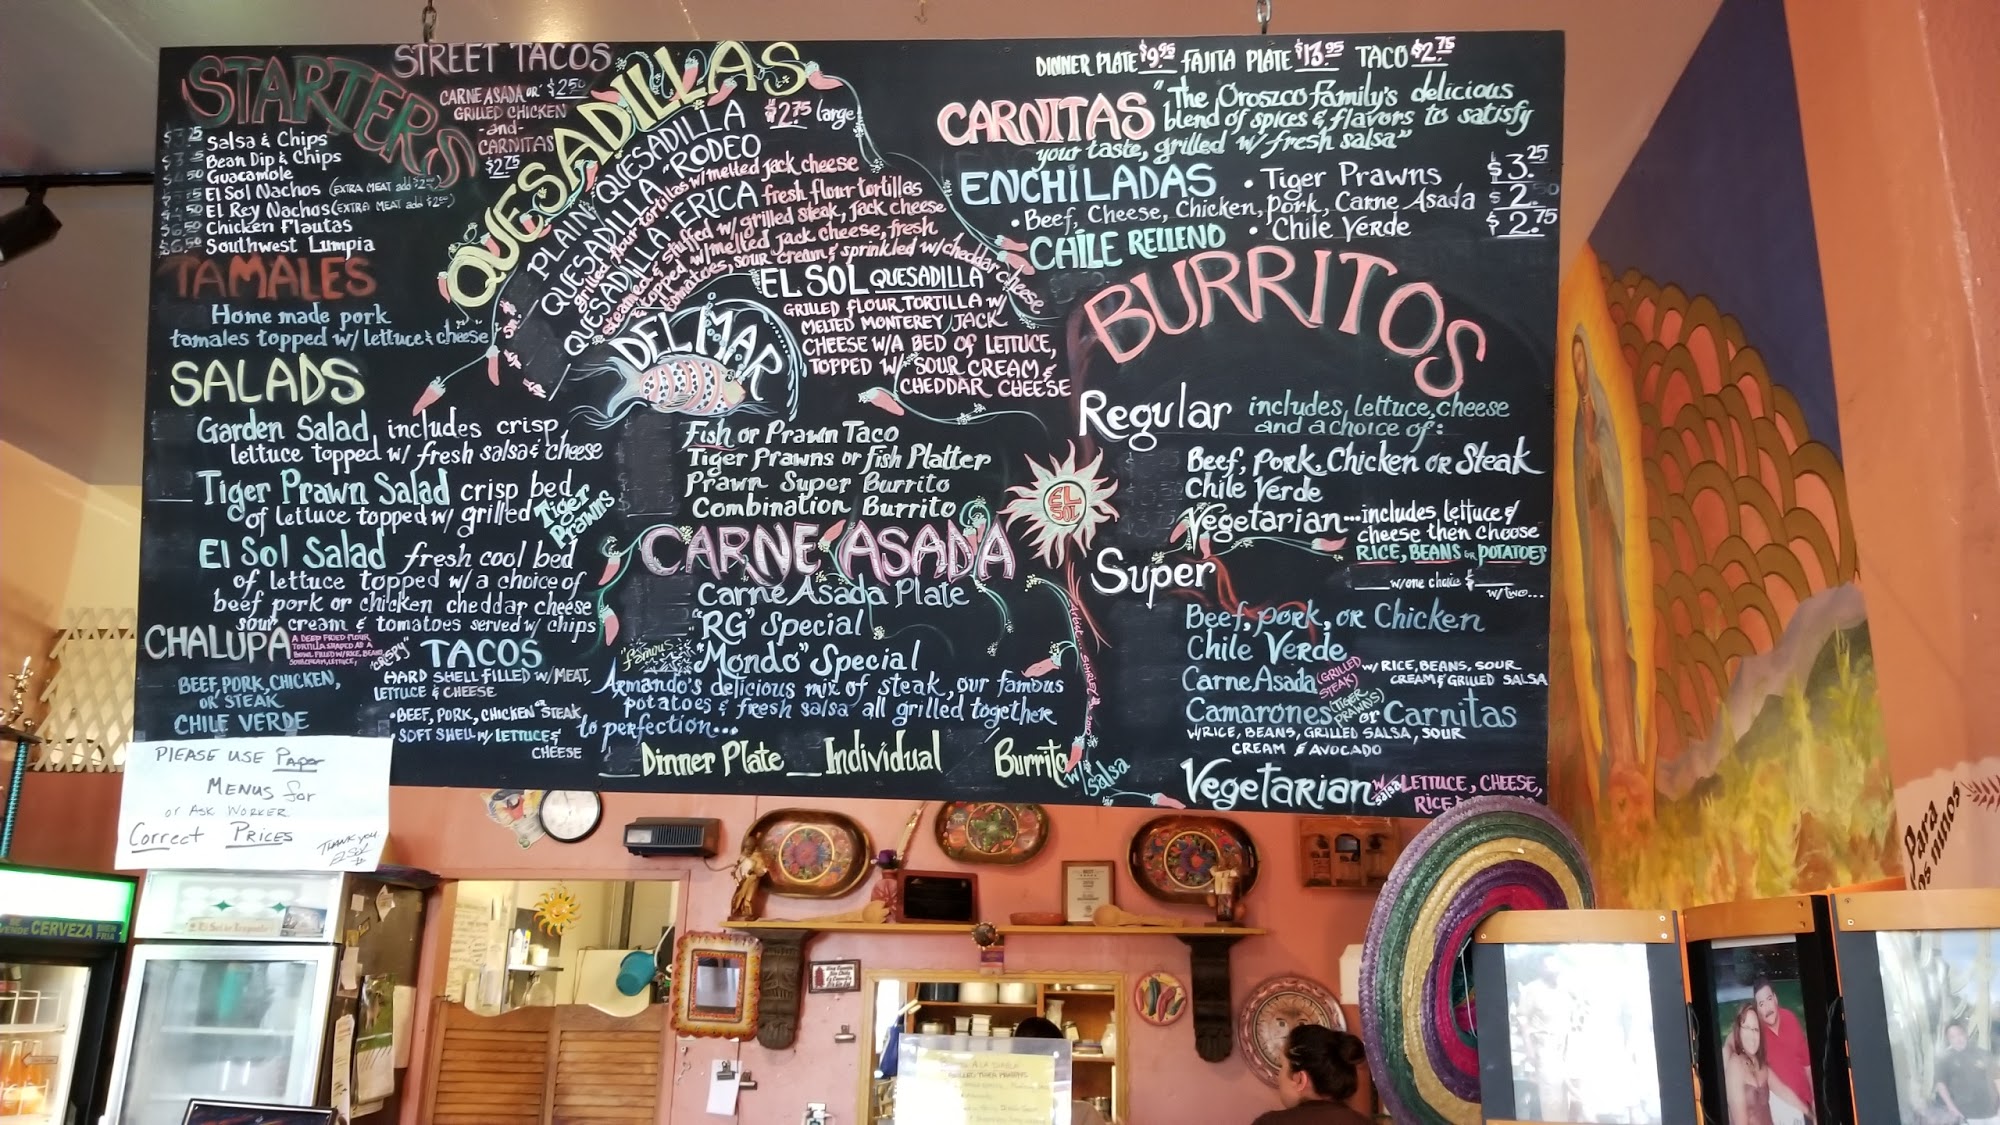 STARTERS
Salsa & Chips
Bean Dip & Chips
Guacamole
El Sol Nachos (EXTRA MEAT add $2.00)
El Rey Nachos (EXTRA MEAT add $2.00)
Chicken Flautas
$6.50 Southwest Lumpia
STREET TACOS
CARNE ASADA OR $2.50
GRILLED CHICKEN
-and-
CARNITAS
$2.75
TAMALES
Home made pork
tamales topped w/ lettuce & cheese
SALADS
Garden Salad includes crisp
lettuce topped w/ fresh salsa & cheese
Tiger Prawn Salad crisp bed
of lettuce topped w/ grilled Tiger Prawns
El Sol Salad fresh cool bed
of lettuce topped w/ a choice of
beef pork or chicken cheddar cheese
sour cream & tomatoes served w/ chips
CHALUPA
A DEEP FRIED FLOUR
TORTILLA SHAPED AS A
BOWL FILLED W/ RICE, BEANS,
SOUR CREAM, LETTUCE,
BEEF, PORK, CHICKEN,
OR STEAK
CHILE VERDE
"CRISPY" TACOS
HARD SHELL FILLED W/ MEAT,
LETTUCE & CHEESE
• BEEF, PORK, CHICKEN OR STEAK
• SOFT SHELL W/ LETTUCE &
CHEESE
QUESADILLAS
PLAIN QUESADILLA $2.75 (large
QUESADILLA "RODEO
grilled flour tortillas w/ melted jack cheese
QUESADILLA "ERICA fresh flour tortillas
steamed & stuffed w/ grilled steak, jack cheese
& topped w/ melted jack cheese, fresh
tomatoes, sour cream & sprinkled w/ cheddar cheese
EL SOL QUESADILLA
GRILLED FLOUR TORTILLA W/
MELTED MONTEREY JACK
CHEESE W/ A BED OF LETTUCE,
TOPPED W/ SOUR CREAM &
CHEDDAR CHEESE
DEL MAR
Fish or Prawn Taco
Tiger Prawns or fish Platter
Prawn Super Burrito
Combination Burrito
CARNE ASADA
Carne Asada Plate
"RG" Special
"famous" "Mondo" Special
Armando's delicious mix of steak, our famous
potatoes & fresh salsa all grilled together
to perfection...
Dinner Plate Individual Burrito w/ Salsa
EL SOL
DINNER PLATE $9.95 FAJITA PLATE $13.95 TACO $2.75
CARNITAS "The Oroszco Family's delicious
blend of spices & flavors to satisfy
your taste, grilled w/ fresh salsa"
ENCHILADAS • Tiger Prawns $3.25
• Beef, Cheese, Chicken, pork, Carne Asada $2.50
• Chile Verde $2.75
CHILE RELLENO
BURRITOS
Regular includes lettuce, cheese
and a choice of:
Beef, Pork, Chicken OR Steak
Chile Verde
Vegetarian... includes lettuce &
cheese then choose
RICE, BEANS OR POTATOES
w/ one choice & w/ two...
Super
Beef, pork, or Chicken
Chile Verde
Carne Asada (GRILLED STEAK) W/ RICE, BEANS, SOUR
CREAM & GRILLED SALSA
Camarones (TIGER PRAWNS) or Carnitas
W/ RICE, BEANS, GRILLED SALSA, SOUR
CREAM & AVOCADO
Vegetarian w/ salsa LETTUCE, CHEESE,
RICE
PLEASE USE Paper
MENUS for
or ASK WORKER
Correct PRICES
THANK YOU
El Sol
CERVEZA
BIEN FRIA
Para
los niños